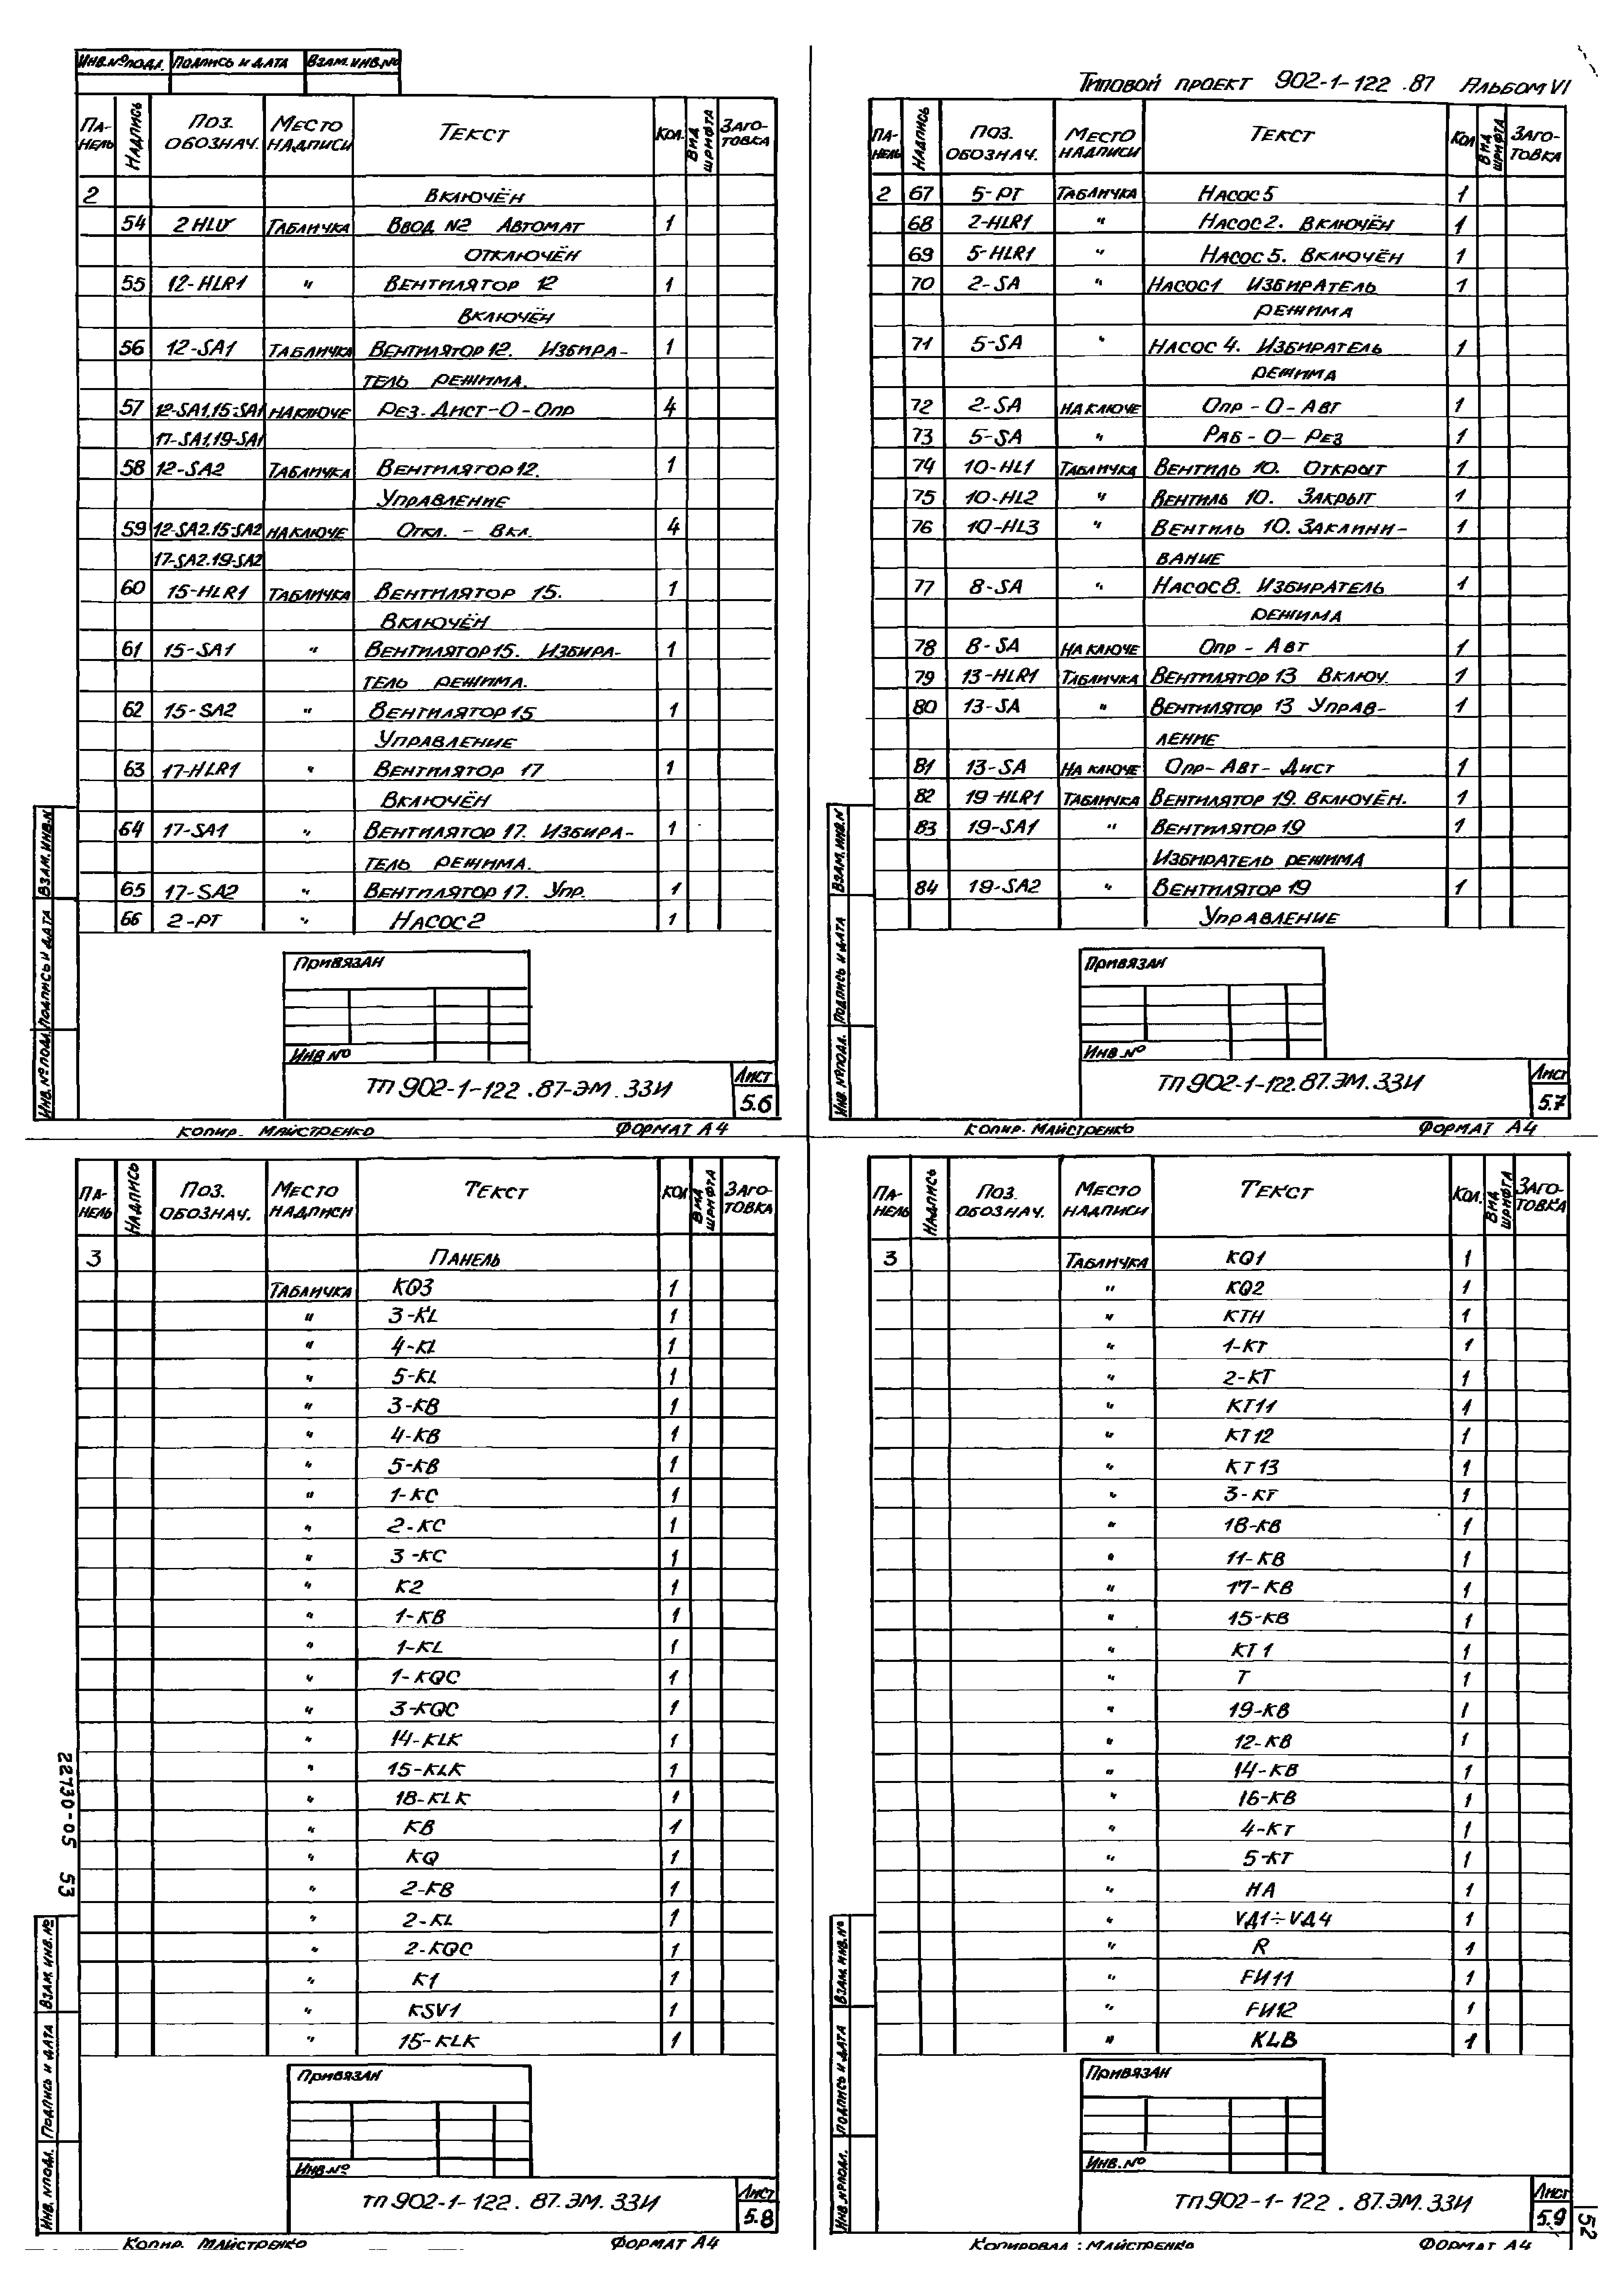 Инв.№подл. Подпись и дата Взам.инв.№
Типовой проект 902-1-122.87 Альбом VI
Па-нель Надпись Поз. обознач. Место надписи Текст Кол. Вид шрифта Заго-товка
2 Включён
54 2HLV Табличка Ввод N2 Автомат 1
отключён
55 12-HLR1 " Вентилятор 12 1
включён
56 12-SA1 Табличка Вентилятор 12. Избира- 1
тель режима.
57 12-SA1,15-SA1 на ключе Рез.-Дист-О-Опр 4
17-SA1,19-SA1
58 12-SA2 Табличка Вентилятор 12. 1
Управление
59 12-SA2.15-SA2 на ключе Откл. - Вкл. 4
17-SA2.19-SA2
60 15-HLR1 Табличка Вентилятор 15. 1
Включён
61 15-SA1 " Вентилятор 15. Избира- 1
тель режима.
62 15-SA2 " Вентилятор 15 1
Управление
63 17-HLR1 " Вентилятор 17 1
Включён
64 17-SA1 " Вентилятор 17. Избира- 1
тель режима.
65 17-SA2 " Вентилятор 17. Упр. 1
66 2-РТ " Насос 2 1
Привязан
Инв №
ТП 902-1-122.87-ЭМ.ЗЗИ
Лист
5.6
Взам.инв.N
Подпись и дата
Инв.№подл.
Копир. Майстренко Формат А4
Па-нель Надпись Поз. обознач. Место надписи Текст Кол Вид шрифта Заго-товка
2 67 5-РТ Табличка Насос 5 1
68 2-HLR1 " Насос 2. Включён 1
69 5-HLR1 " Насос 5. Включён 1
70 2-SA " Насос 1 Избиратель 1
режима
71 5-SA " Насос 4. Избиратель 1
режима
72 2-SA на ключе Опр - О - Авт 1
73 5-SA " Раб - О - Рез 1
74 10-HL1 Табличка Вентиль 10. Открыт 1
75 10-HL2 " Вентиль 10. Закрыт 1
76 10-HL3 " Вентиль 10. Заклини- 1
вание
77 8-SA " Насос 8. Избиратель 1
режима
78 8-SA на ключе Опр - Авт 1
79 13-HLR1 Табличка Вентилятор 13 Включ. 1
80 13-SA " Вентилятор 13 Управ- 1
ление
81 13-SA на ключе Опр - Авт - Дист 1
82 19-HLR1 Табличка Вентилятор 19. Включён. 1
83 19-SA1 " Вентилятор 19 1
Избиратель режима
84 19-SA2 " Вентилятор 19 1
Управление
Привязан
Инв.№
ТП 902-1-122.87.ЭМ.ЗЗИ
Лист
5.7
Взам.инв.N
Подпись и дата
Инв №подл.
Копир. Майстренко Формат А4
Па-нель Надпись Поз. обознач. Место надписи Текст Кол Вид шрифта Заго-товка
3 Панель
Табличка KQ3 1
" 3-KL 1
" 4-KL 1
" 5-KL 1
" 3-КВ 1
" 4-КВ 1
" 5-КВ 1
" 1-КС 1
" 2-КС 1
" 3-КС 1
" К2 1
" 1-КВ 1
" 1-KL 1
" 1-KQC 1
" 3-KQC 1
" 14-KLK 1
" 15-KLK 1
" 18-KLK 1
" КВ 1
" KQ 1
" 2-КВ 1
" 2-KL 1
" 2-KQC 1
" К1 1
" KSV1 1
" 15-KLK 1
Привязан
Инв.№
ТП 902-1-122.87.ЭМ.ЗЗИ
Лист
5.8
22730-05 53
Взам.инв.№
Подпись и дата
Инв.Nподл.
Копир. Майстренко Формат А4
Па-нель Надпись Поз. обознач. Место надписи Текст Кол. Вид шрифта Заго-товка
3 Табличка KQ1 1
" KQ2 1
" КТН 1
" 1-КТ 1
" 2-КТ 1
" КТ11 1
" КТ12 1
" КТ13 1
" 3-КТ 1
" 18-КВ 1
" 11-КВ 1
" 17-КВ 1
" 15-КВ 1
" КТ1 1
" Т 1
" 19-КВ 1
" 12-КВ 1
" 14-КВ 1
" 16-КВ 1
" 4-КТ 1
" 5-КТ 1
" НА 1
" VД1÷VД4 1
" R 1
" FИ11 1
" FИ12 1
" KLB 1
Привязан
Инв.№
ТП 902-1-122.87.ЭМ.ЗЗИ
Лист
5.9
52
Взам.инв.№
Подпись и дата
Инв.№подл.
Копировал: Майстренко Формат А4